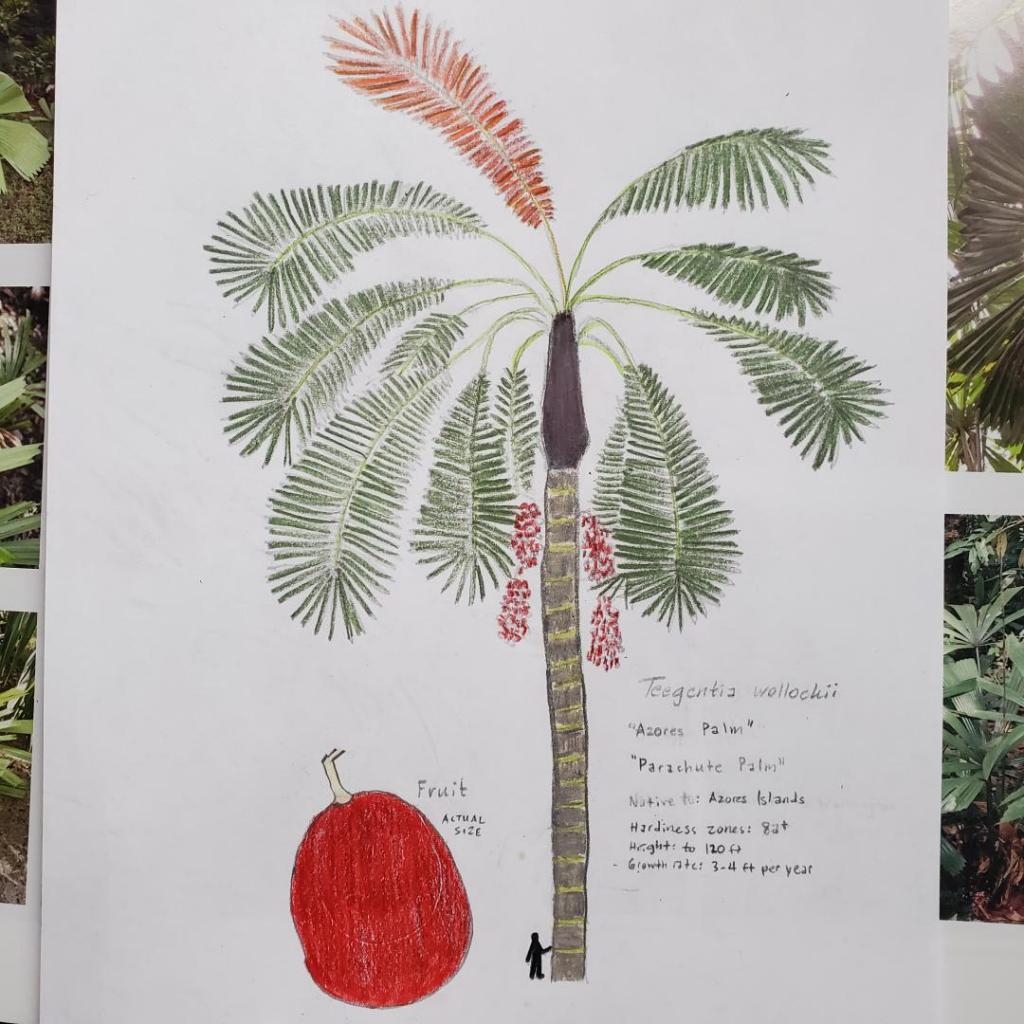 Teegentia wollochii
"Azores Palm"
"Parachute Palm"
Native to: Azores Islands
Hardiness zones: 8a+
Height: to 120 ft
- Growth rate: 3-4 ft per year
Fruit
ACTUAL
SIZE